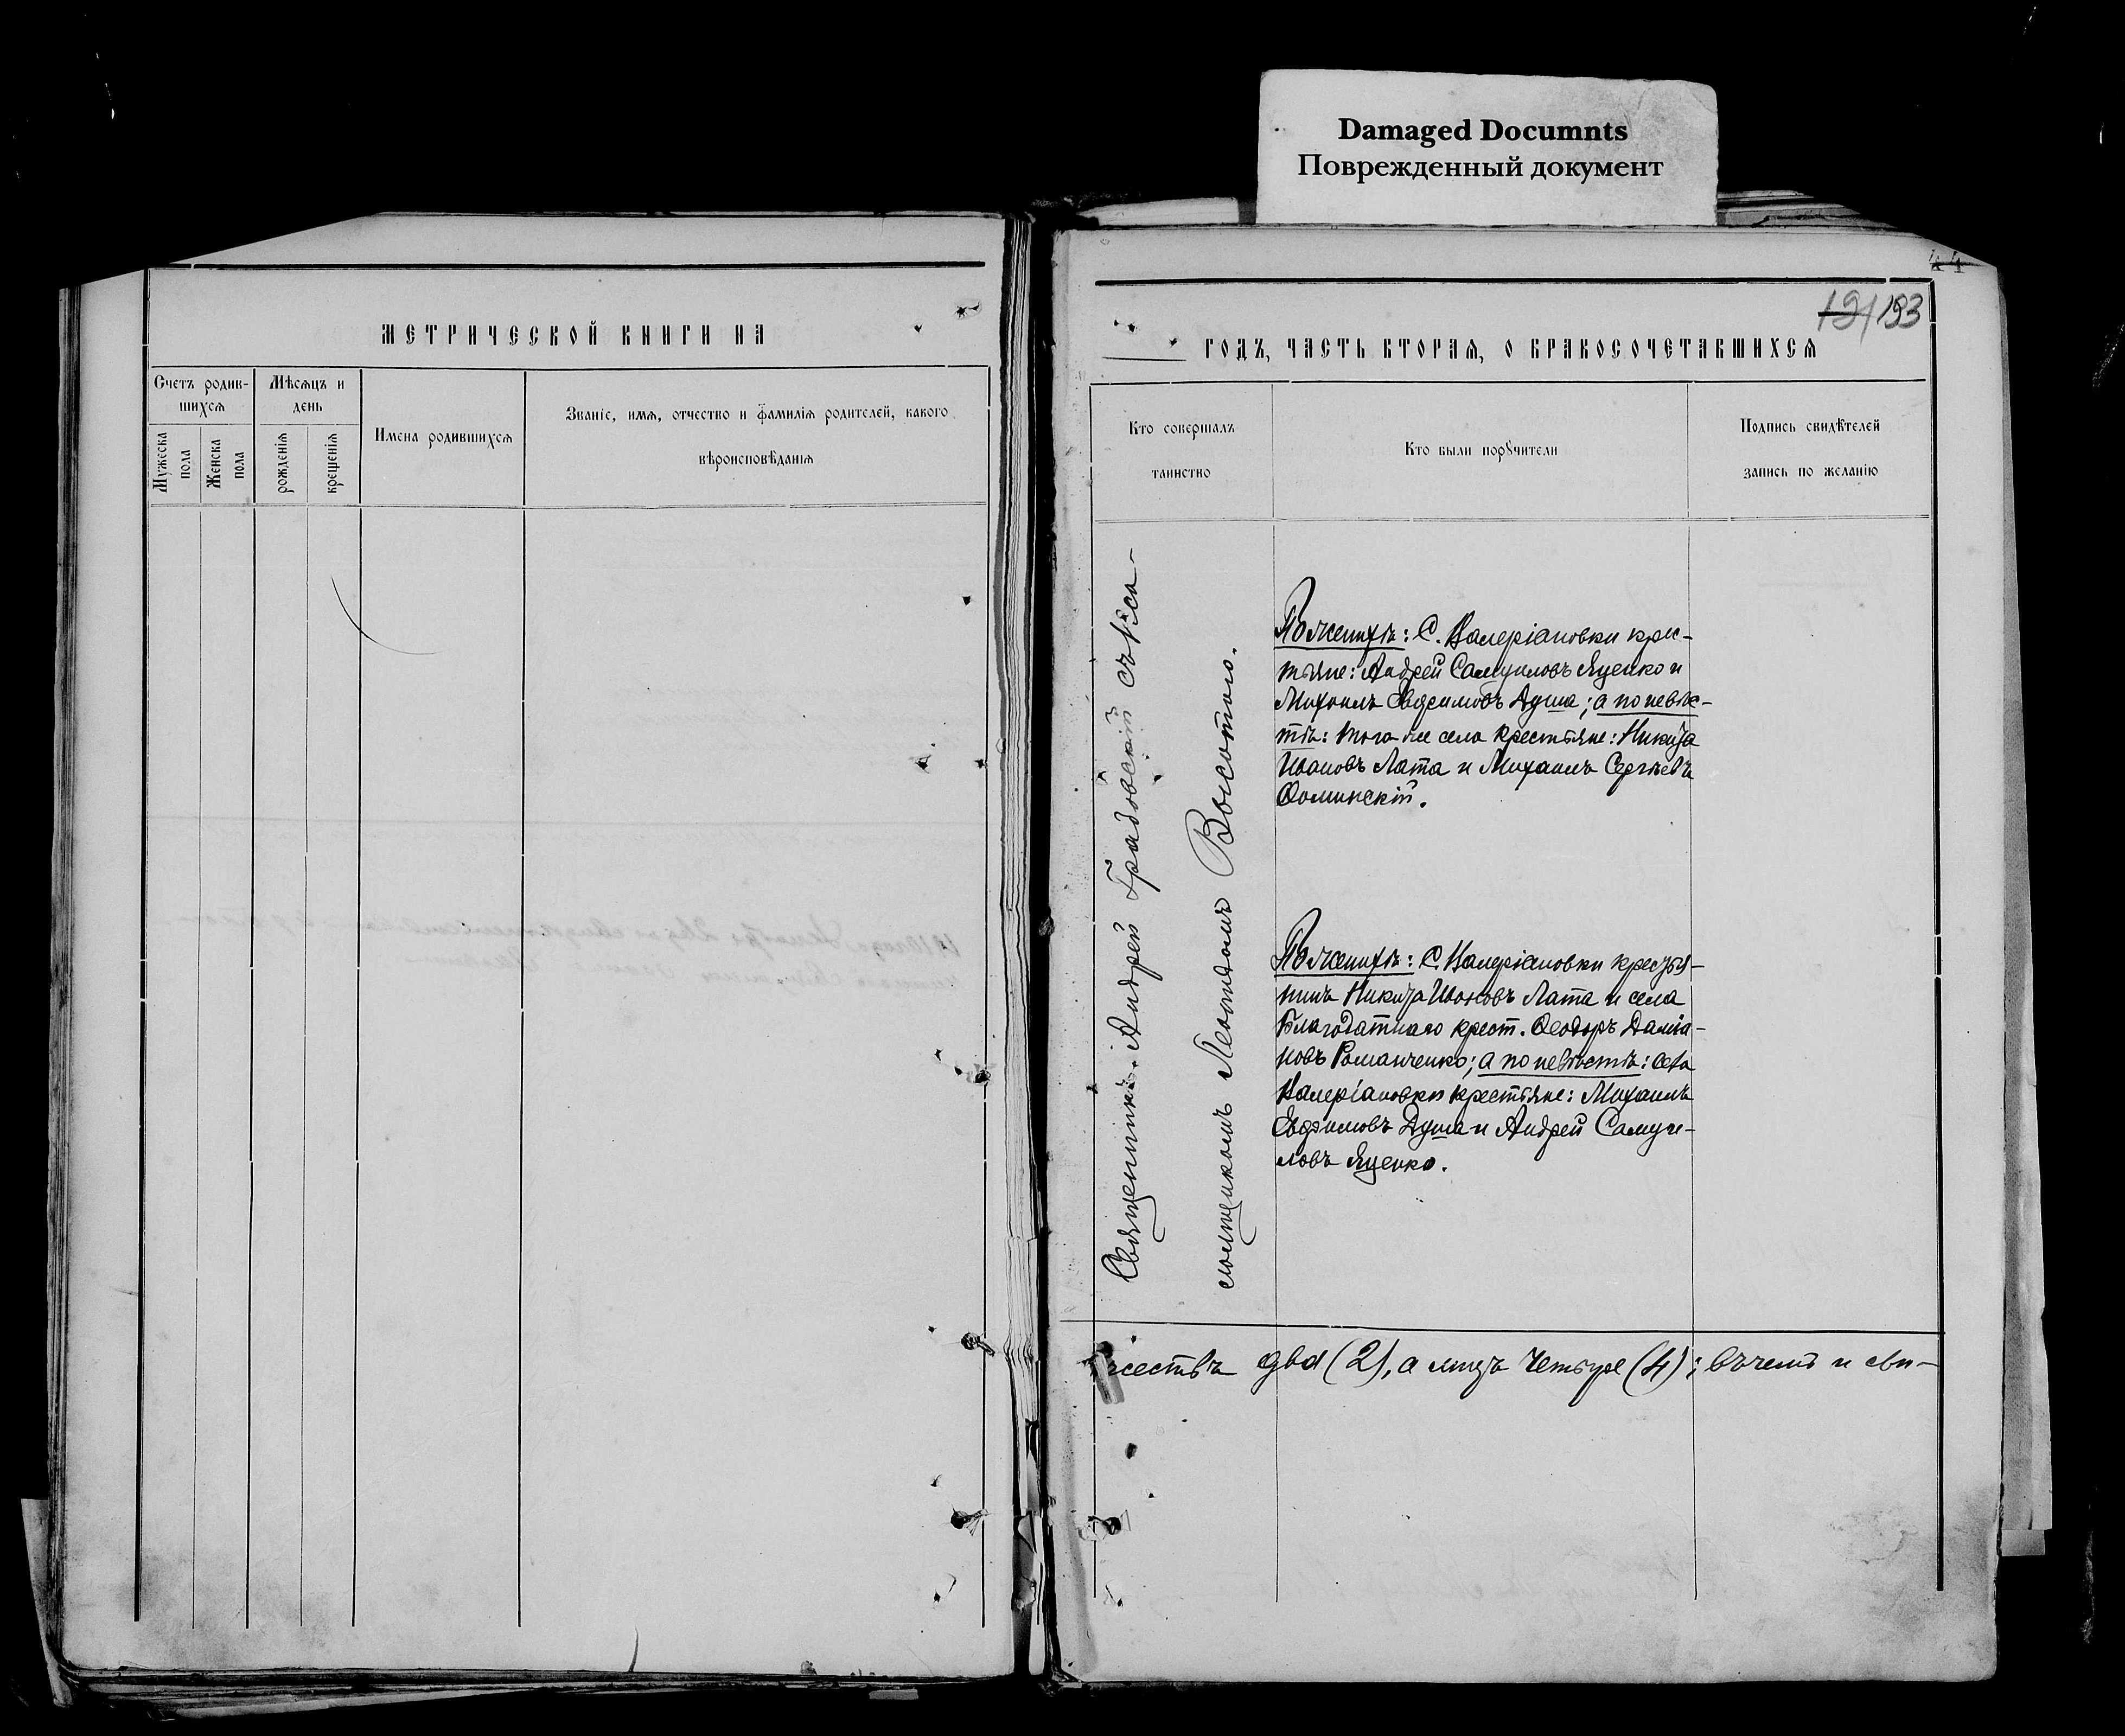 Damaged Documnts
Поврежденный документ
МЕТРИЧЕСКОЙ КНИГИ НА
Счетъ родив-
шихсѧ
Мѣсѧцъ и
день
Имена родившихсѧ
Званіе, имѧ, отчество и фамиліѧ родителей, какого
вѣроисповѣданіѧ
Мужеска
пола
Женска
пола
рожденіѧ
крещеніѧ
44
19/193
ГОДЪ, ЧАСТЬ ВТОРАѦ, О БРАКОСОЧЕТАВШИХСѦ
Кто совершалъ
таинство
Кто были порꙋчители
Подпись свидѣтелей
запись по желанію
Священникъ Андрей Градовскій съ Пса-
ломщикомъ Леонтіомъ Высотою.
По женихѣ: С. Валеріановки крес-
тьяне: Андрей Самуиловъ Яценко и
Михаилъ Евфимовъ Душа; а по невѣс-
тѣ: того же села крестьяне: Никита
Ивановъ Лата и Михаилъ Сергѣевъ
Фоминскій.
По женихѣ: С. Валеріановки крестья-
нинъ Никита Ивановъ Лата и села
Благодатнаго крест. Ѳеодоръ Даміа-
новъ Романченко; а по невѣстѣ: села
Валеріановки крестьяне: Михаилъ
Евфимовъ Душа и Андрей Самуи-
ловъ Яценко.
жествъ два (2), а лицъ четыре (4); въ чемъ и сви-